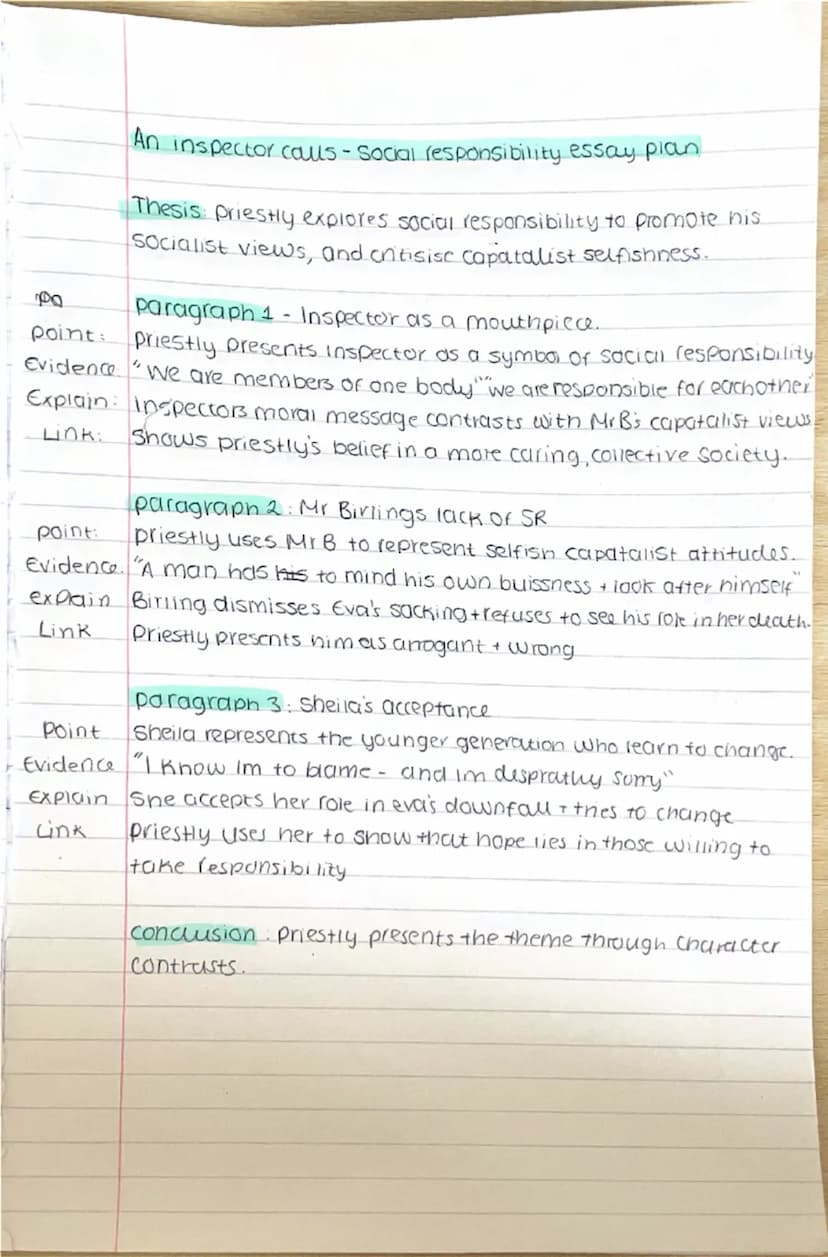 An inspector calls - Social responsibility essay plan
Thesis: priestly explores social responsibility to promote his
socialist views, and critisise capatalist selfishness.
paragraph 1 - Inspector as a mouthpiece.
point: priestly presents inspector as a symbol of social responsibility
Evidence "We are members of one body" "we are responsible for eachother"
Explain: Inspectors moral message contrasts with Mr B's capatalist views
Link: Shows priestly's belief in a more caring, collective society.
paragraph 2: Mr Birlings lack of SR
point: priestly uses Mr B to represent selfish capatalist attitudes.
Evidence. "A man has his to mind his own buissness + look after himself"
explain Birling dismisses Eva's sacking + refuses to see his role in her death.
Link Priestly presents him as arrogant + wrong
paragraph 3: Sheila's acceptance
Point Sheila represents the younger generation who learn to change.
Evidence "I know Im to blame - and im despratly sorry"
Explain She accepts her role in eva's downfall + tries to change
Link priestly uses her to show that hope lies in those willing to
take responsibility
conclusion: priestly presents the theme through character
contrasts.